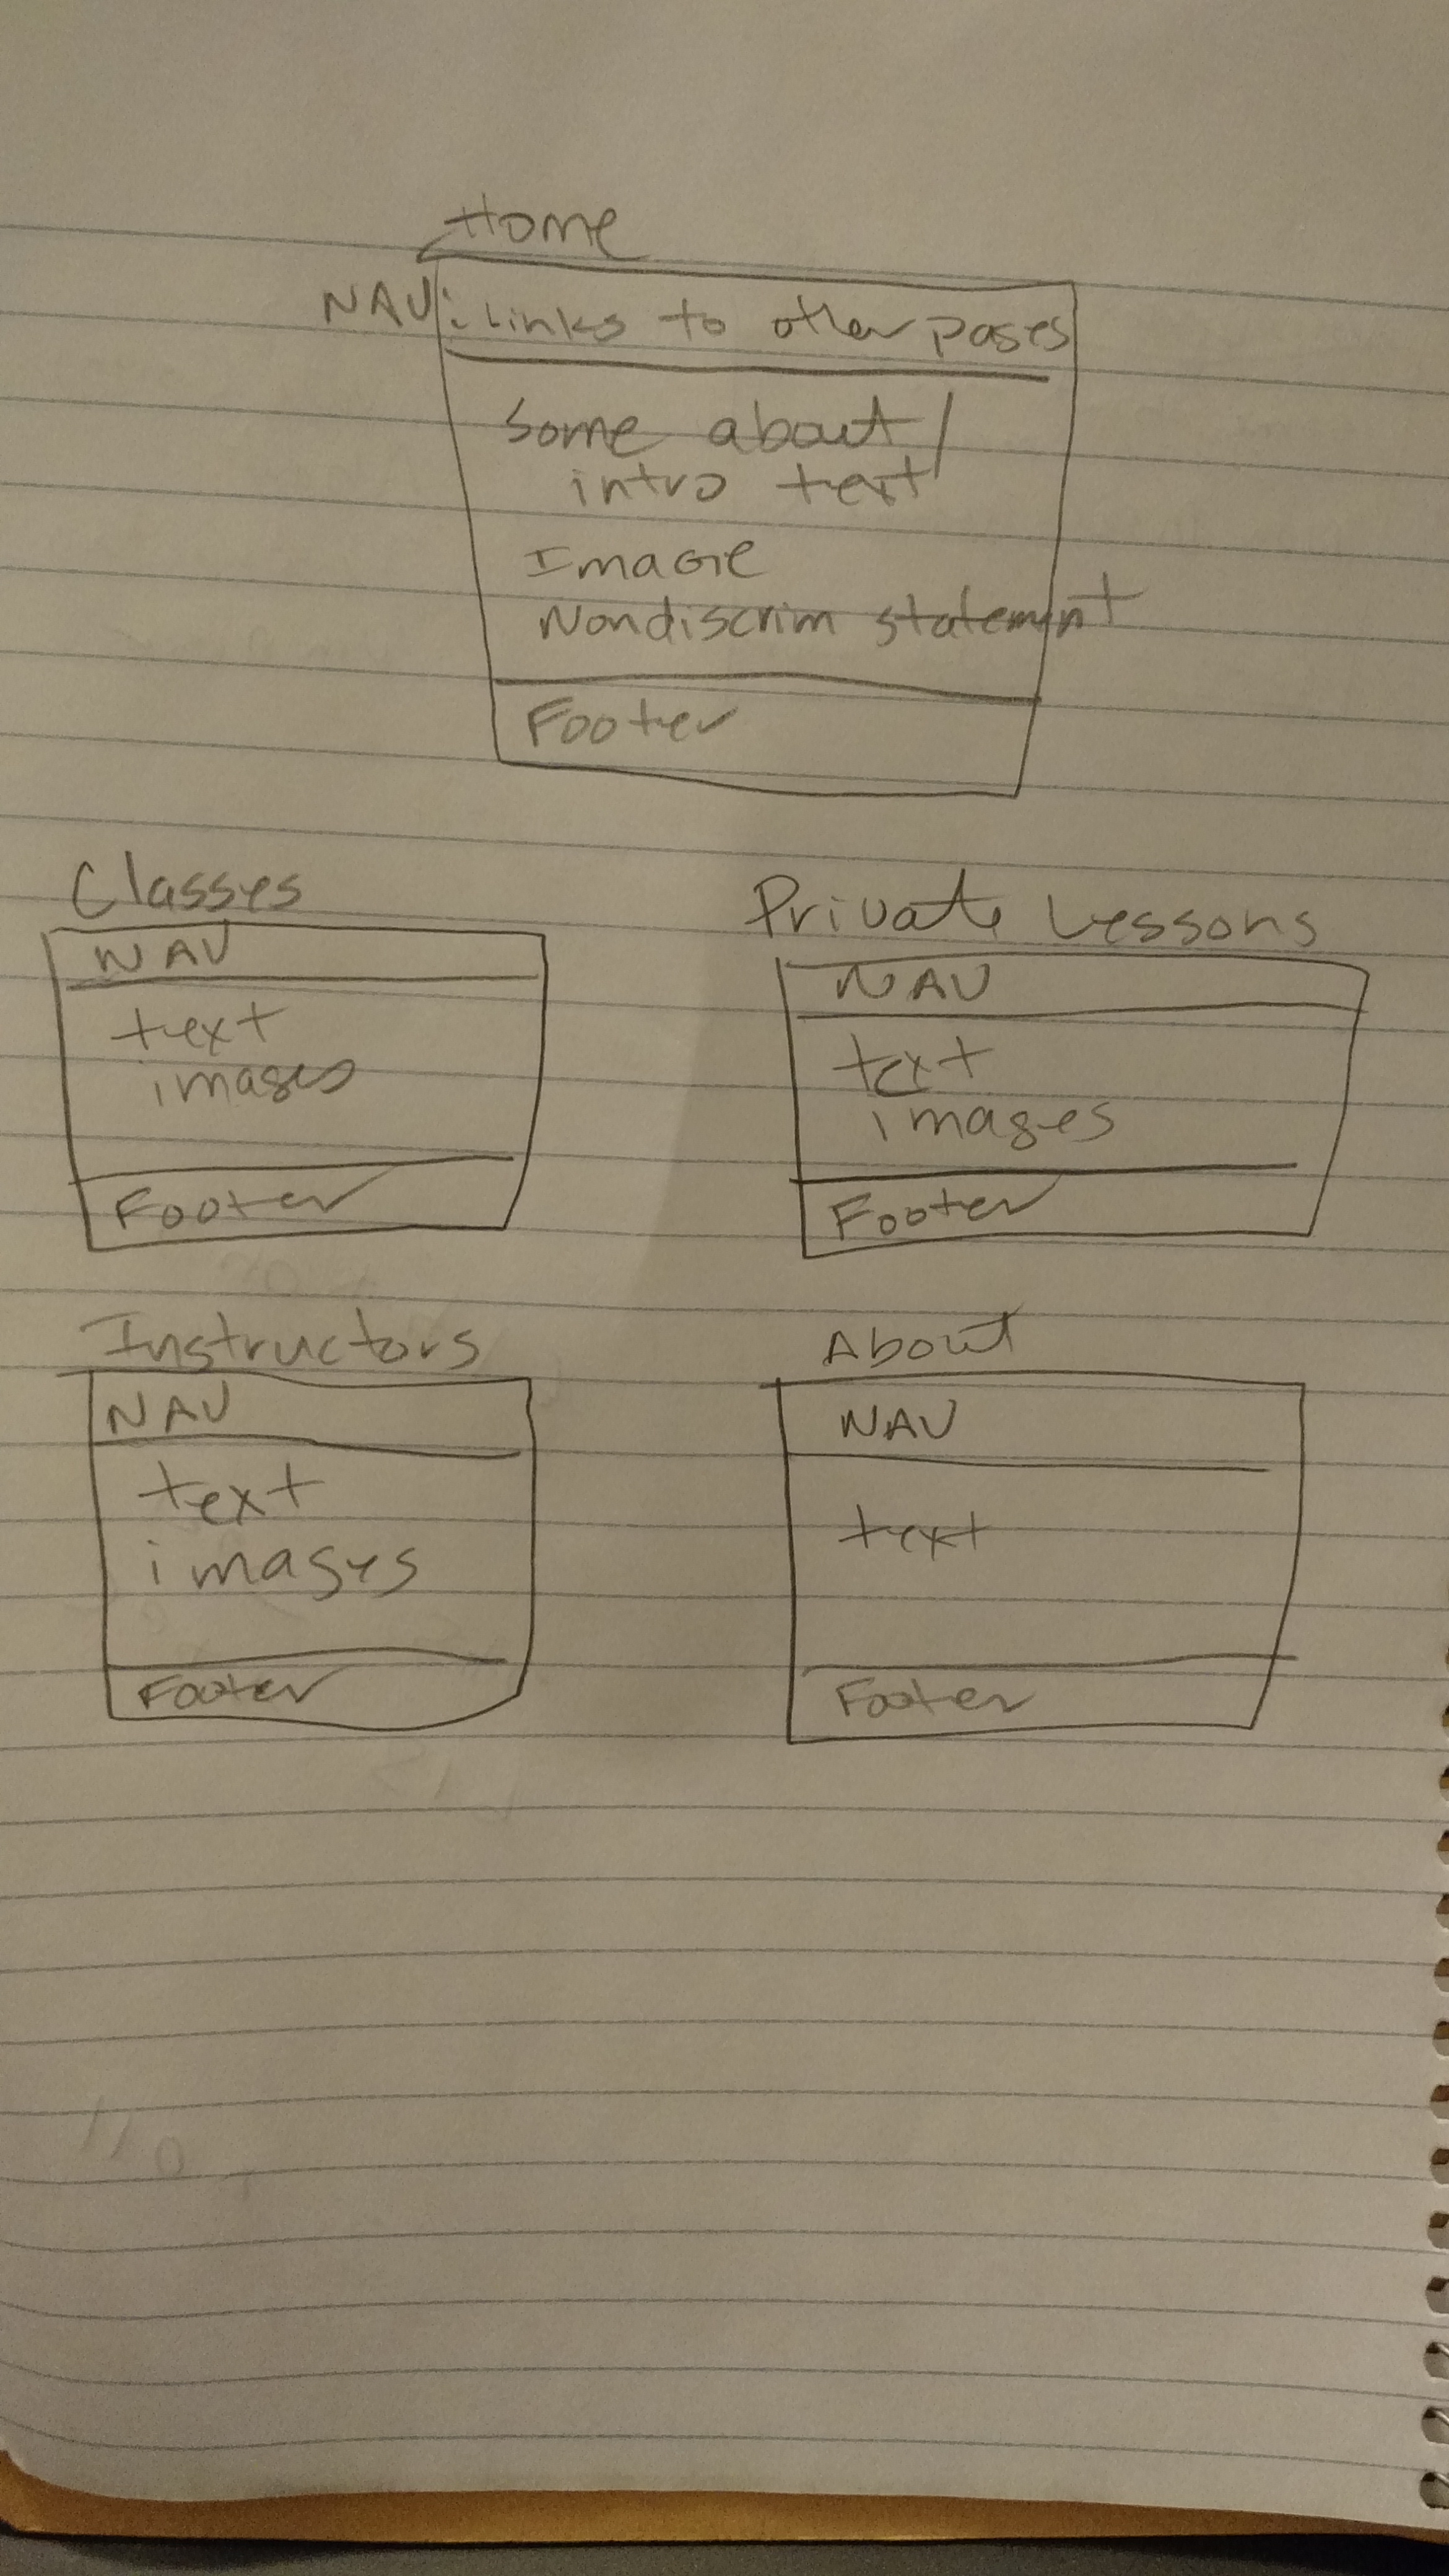 Home
NAV: Links to other pages
Some about/
intro text
Image
Nondiscrim statement
Footer
Classes
NAV
text
images
Footer
Private Lessons
NAV
text
images
Footer
Instructors
NAV
text
images
Footer
About
NAV
text
Footer